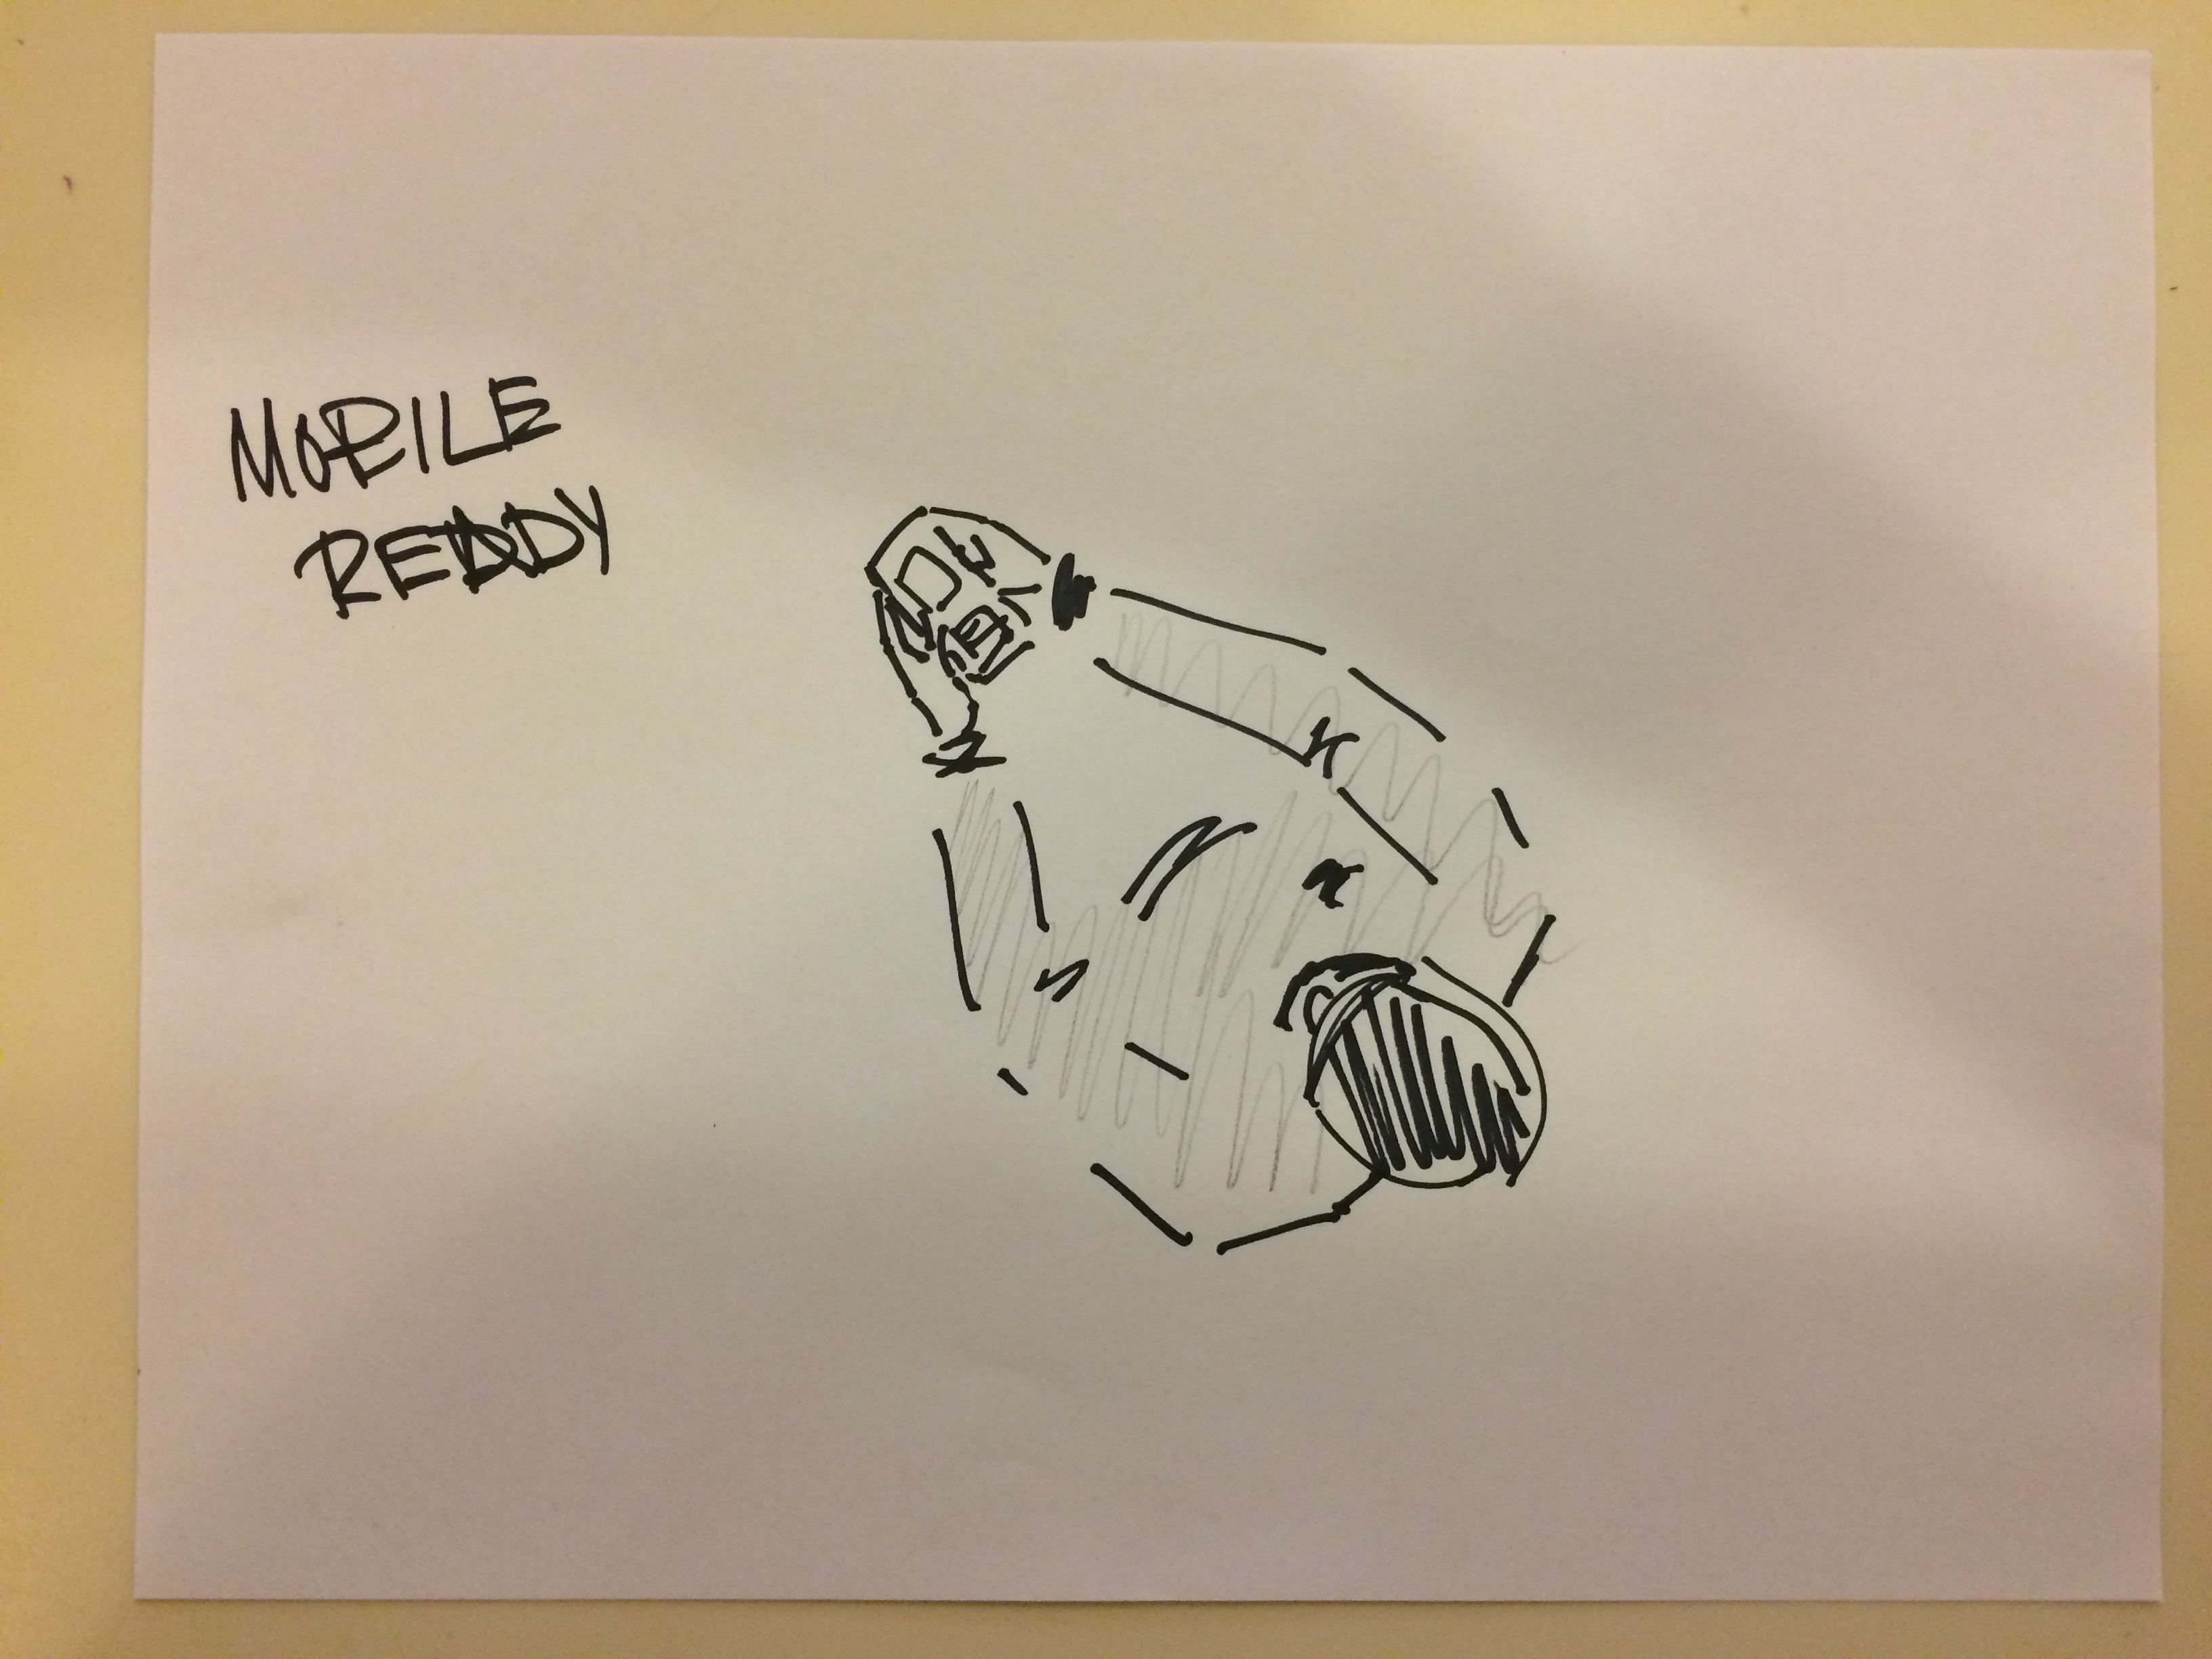 MOBILE
READY